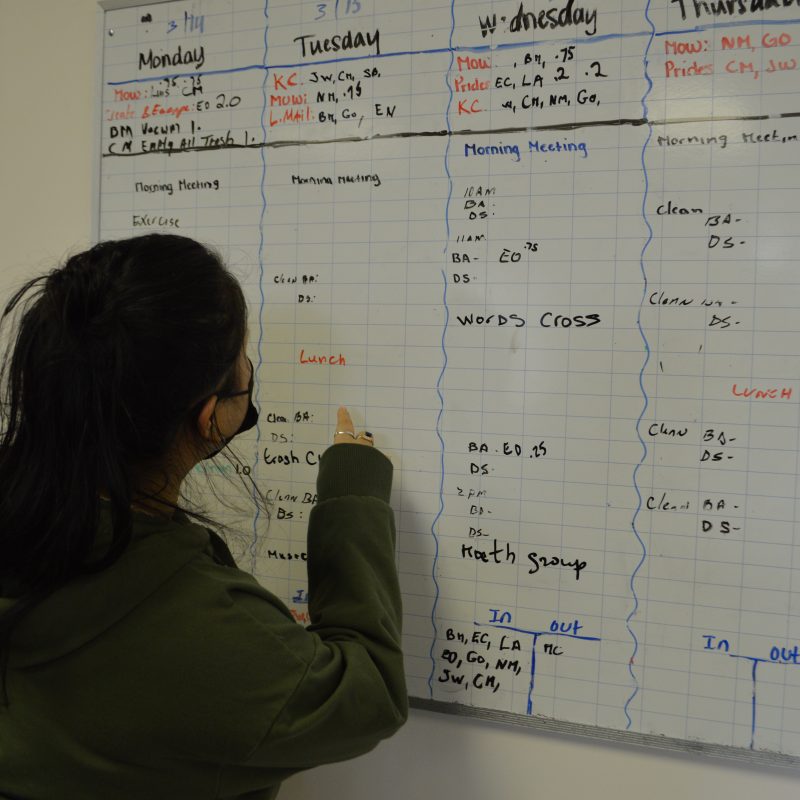 3/14
Monday
Mow: CM
EO 2.0
DM Vacum 1.
CM Empty All Trash 1.
Morning Meeting
Exercise
1.0
3/15
Tuesday
KC. JW, CM, SB,
Mow: NM, .75
L.Mail: BM, GO, EN
Morning Meeting
Clean BA:
DS:
Lunch
Clean BA:
DS:
trash
Clean BA
DS:
In
Wednesday
Mow: , BM, .75
Prides EC, LA .2 .2
KC. CM, NM, GO,
Morning Meeting
10AM
BA.
DS.
11AM
BA- EO .75
DS-
Words Cross
BA. EO .25
DS-
2PM
BA-
DS-
Math group
In out
BM, EC, LA MC
EO, GO, NM,
JW, CM,
Thursday
Mow: NM, GO
Prides CM, JW
Morning Meetin
Clean BA-
DS-
Clean
DS-
LUNCH
Clean BA-
DS-
Clean BA-
DS-
In out